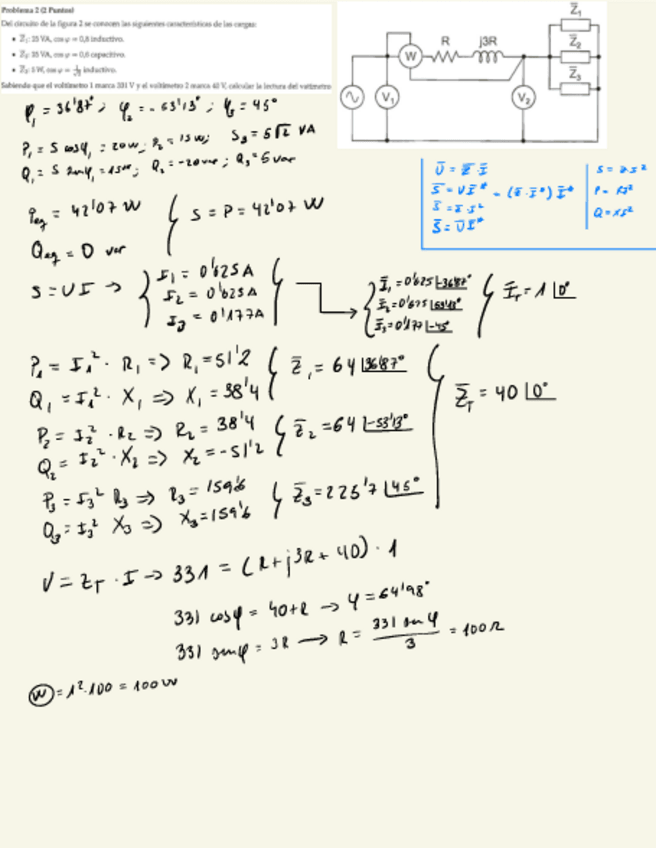 Problema 2 (2 Puntos)
Del circuito de la figura 2 se conocen las siguientes características de las cargas:
• Z̅₁: 25 VA, cos φ = 0,8 inductivo.
• Z̅₂: 25 VA, cos φ = 0,6 capacitivo.
• Z̅₃: 5 W, cos φ = 1/√2 inductivo.
Sabiendo que el voltímetro 1 marca 331 V y el voltímetro 2 marca 40 V, calcular la lectura del vatímetro
W R j3R Z̅₁
Z̅₂
Z̅₃
V₁ V₂
φ₁ = 36'87°; φ₂ = -53'13°; φ₃ = 45°
P₁ = S cosφ₁ = 20w; P₂ = 15w; S₃ = 5√2 VA
Q₁ = S senφ₁ = 15var; Q₂ = -20var; Q₃ = 5var
U̅ = Z̅·I̅
S̅ = V I̅* = (Z̅·I̅*) I̅*
S̅ = Z̅·I²
S̅ = U̅ I̅*
S = Z·I²
P = RI²
Q = XI²
Peq = 42'07 W
Qeq = 0 var
S = P = 42'07 W
S = UI → I₁ = 0'625A
I₂ = 0'625A
I₃ = 0'177A
I̅₁ = 0'625 |-36'87°
I̅₂ = 0'625 |53'13°
I̅₃ = 0'177 |-45°
I̅T = 1 |0°
P₁ = I₁² · R₁ => R₁ = 51'2
Q₁ = I₁² · X₁ => X₁ = 38'4
Z̅₁ = 64 |36'87°
P₂ = I₂² · R₂ => R₂ = 38'4
Q₂ = I₂² · X₂ => X₂ = -51'2
Z̅₂ = 64 |-53'13°
P₃ = I₃² R₃ => R₃ = 159'6
Q₃ = I₃² X₃ => X₃ = 159'6
Z̅₃ = 225'7 |45°
Z̅T = 40 |0°
V = ZT · I → 331 = (R + j3R + 40) · 1
331 cosφ = 40+R → φ = 64'98°
331 senφ = 3R → R = 331 sen φ / 3 = 100Ω
W = 1²·100 = 100W